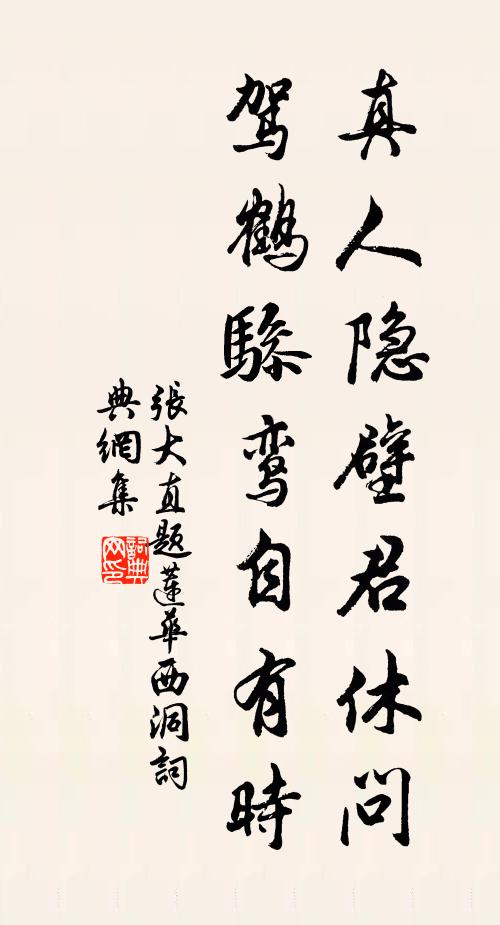 真人隐壁君休问
驾鹤骖鸾自有時
張大直題蓮華西洞詞
典網集
詞典网印